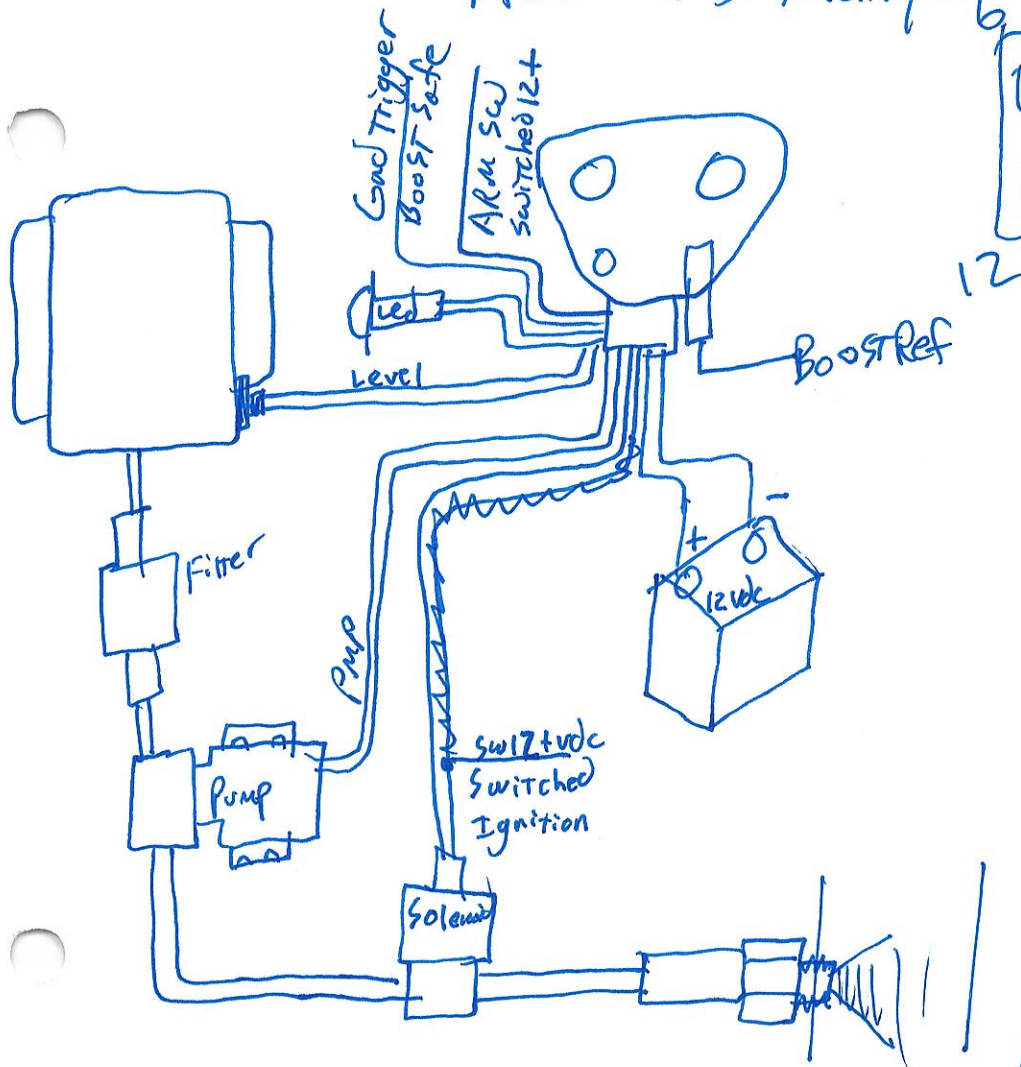 6
12
Gnd Trigger
BOOST Safe
ARM SW
Switched 12+
Led
Level
BOOST Ref
-
+
12vdc
Filter
Pmp
Pump
SW12+vdc
Switched
Ignition
Solenoid